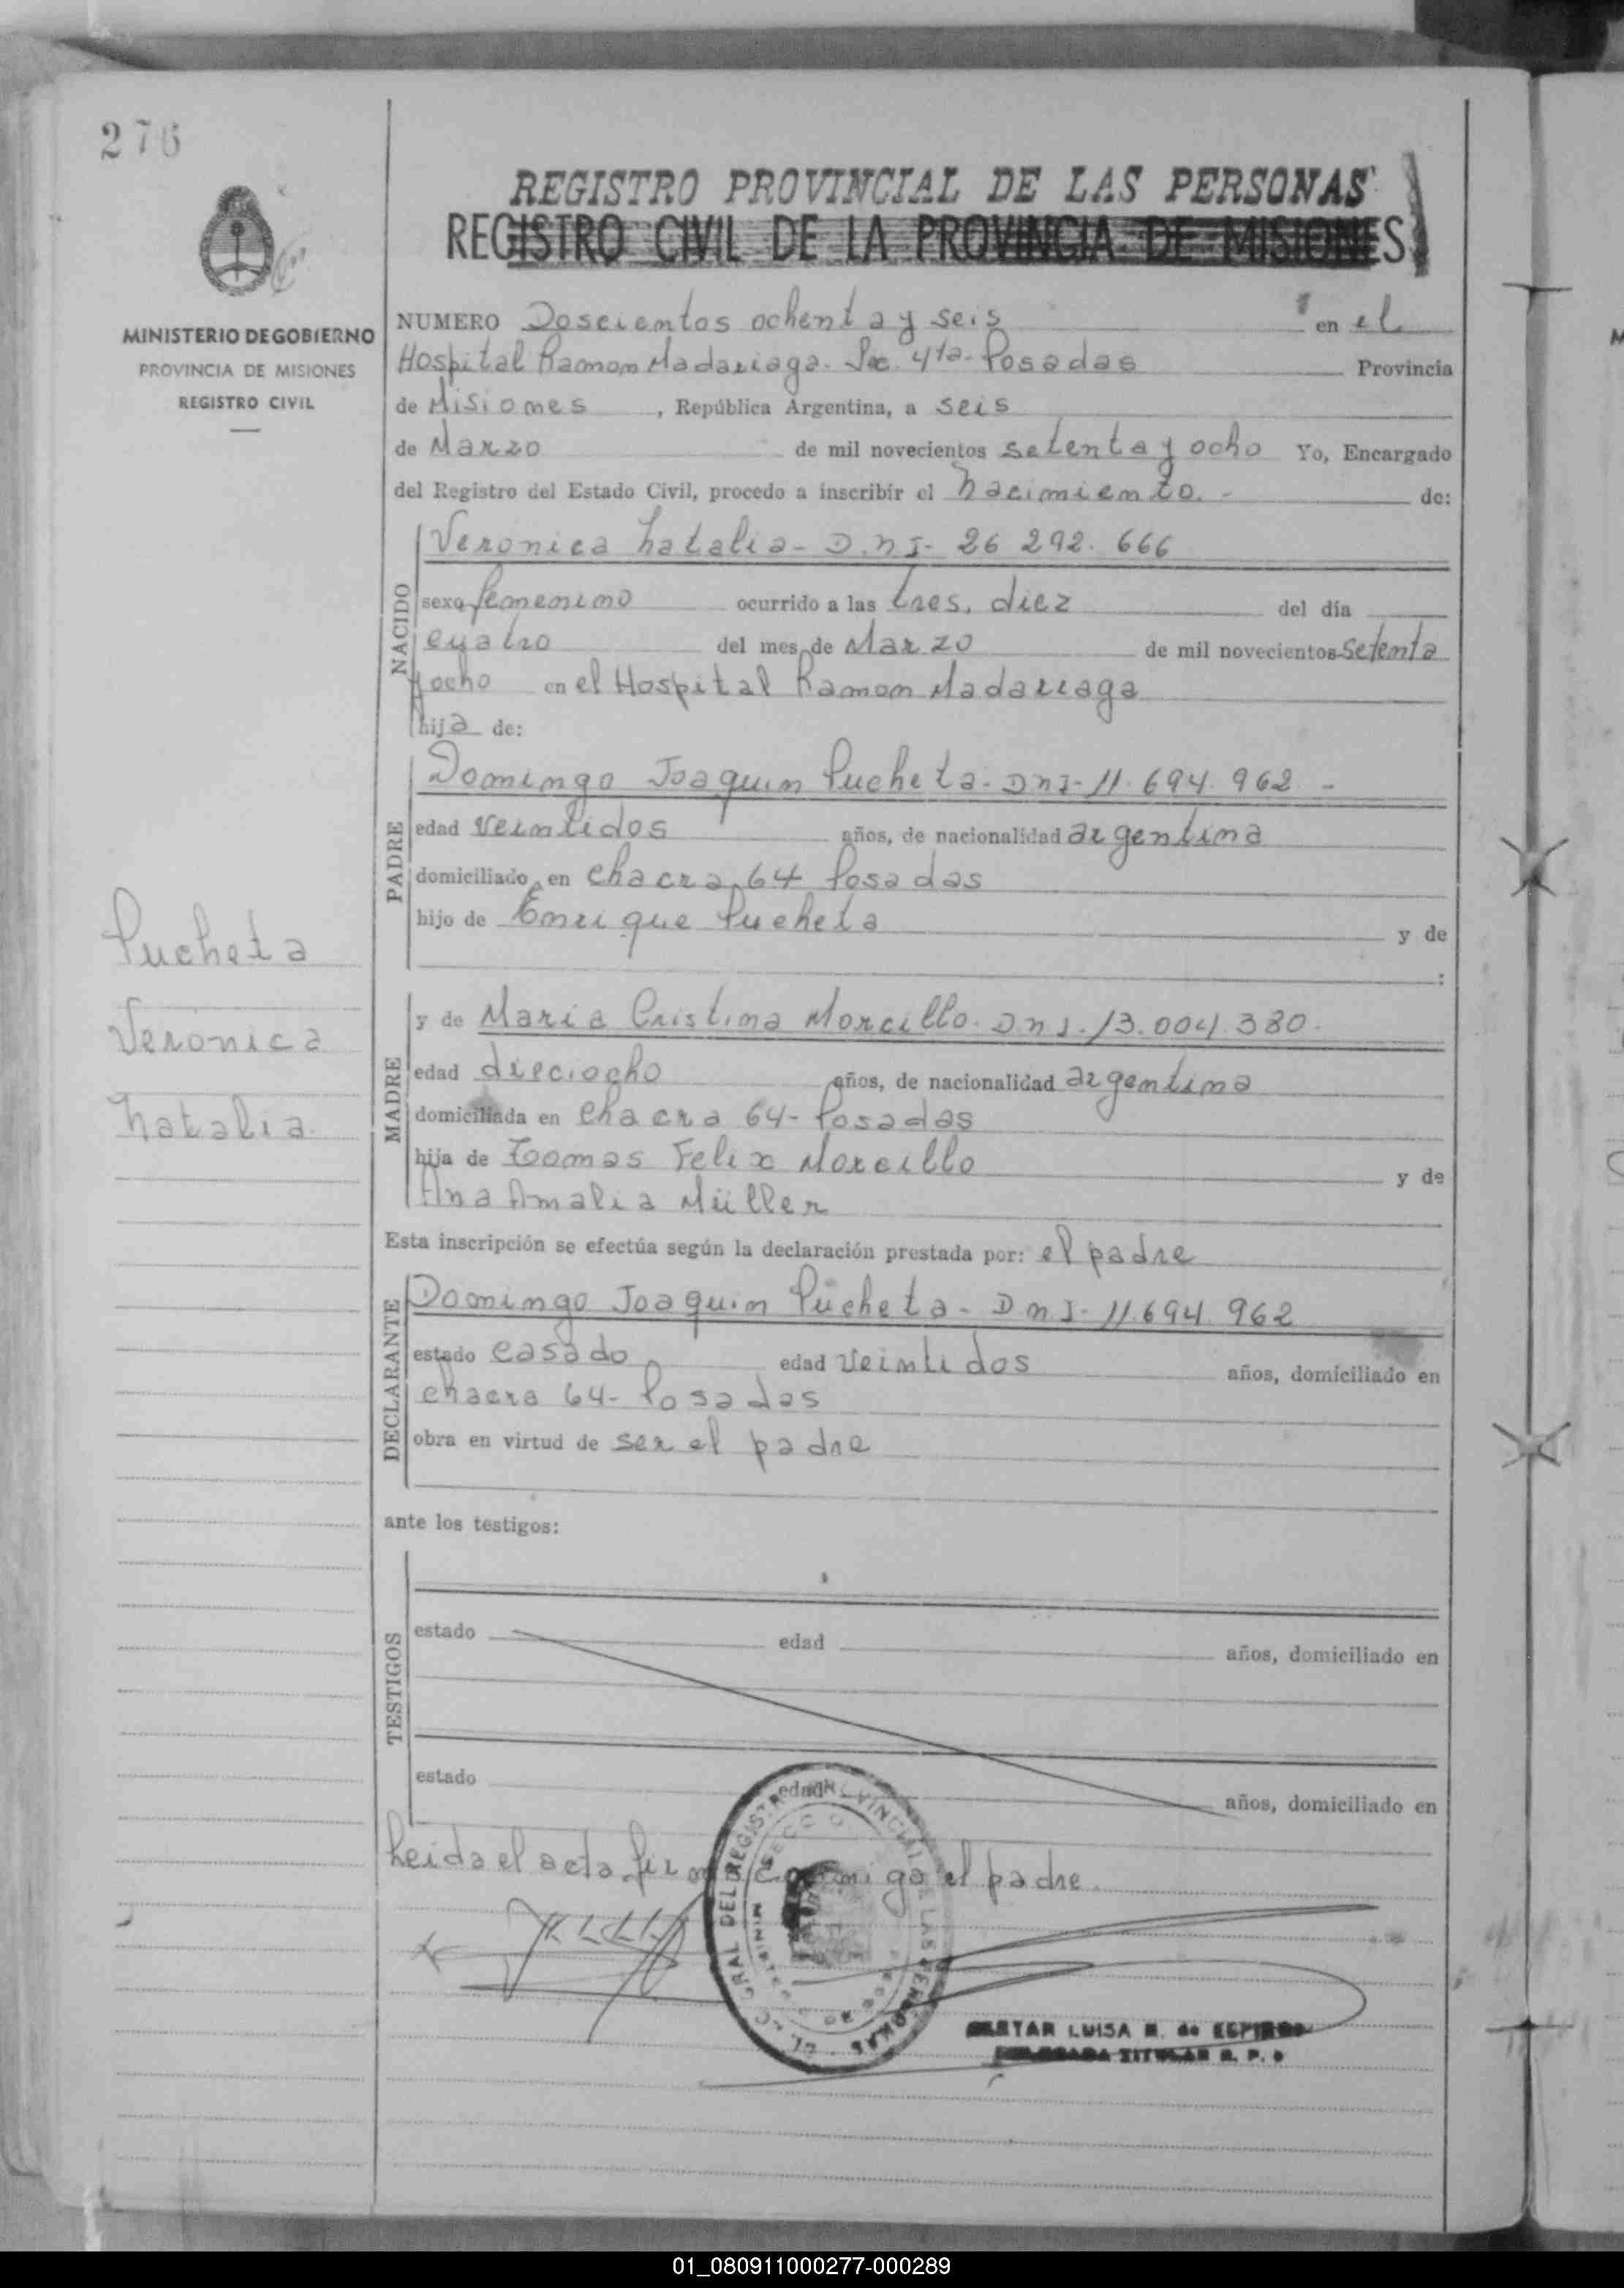 276
MINISTERIO DE GOBIERNO
PROVINCIA DE MISIONES
REGISTRO CIVIL
Pucheta
Veronica
Natalia
REGISTRO PROVINCIAL DE LAS PERSONAS
REGISTRO CIVIL DE LA PROVINCIA DE MISIONES
NUMERO Doscientos ochenta y seis en el
Hospital Ramon Madariaga. Sec. 4ta. Posadas Provincia
de Misiones, República Argentina, a seis
de Marzo de mil novecientos setenta y ocho Yo, Encargado
del Registro del Estado Civil, procedo a inscribir el Nacimiento.- de:
NACIDO
Veronica Natalia - D.N.I- 26 292. 666
sexo femenino ocurrido a las tres, diez del día
cuatro del mes de Marzo de mil novecientos setenta
y ocho en el Hospital Ramon Madariaga
hija de:
PADRE
Domingo Joaquin Pucheta - DNI- 11.694.962 -
edad veintidos años, de nacionalidad argentina
domiciliado en chacra 64 Posadas
hijo de Enrique Pucheta y de
:
MADRE
y de Maria Cristina Morcillo. DNI. 13.004.380.
edad dieciocho años, de nacionalidad argentina
domiciliada en chacra 64- Posadas
hija de Tomas Felix Morcillo y de
Ana Amalia Müller
Esta inscripción se efectúa según la declaración prestada por: el padre
DECLARANTE
Domingo Joaquin Pucheta - DNI- 11.694.962
estado casado edad veintidos años, domiciliado en
chacra 64- Posadas
obra en virtud de ser el padre
ante los testigos:
TESTIGOS
estado edad años, domiciliado en
estado edad años, domiciliado en
Leida el acta firma conmigo el padre.
LUISA M. de
TITULAR R. P.
01_080911000277-000289